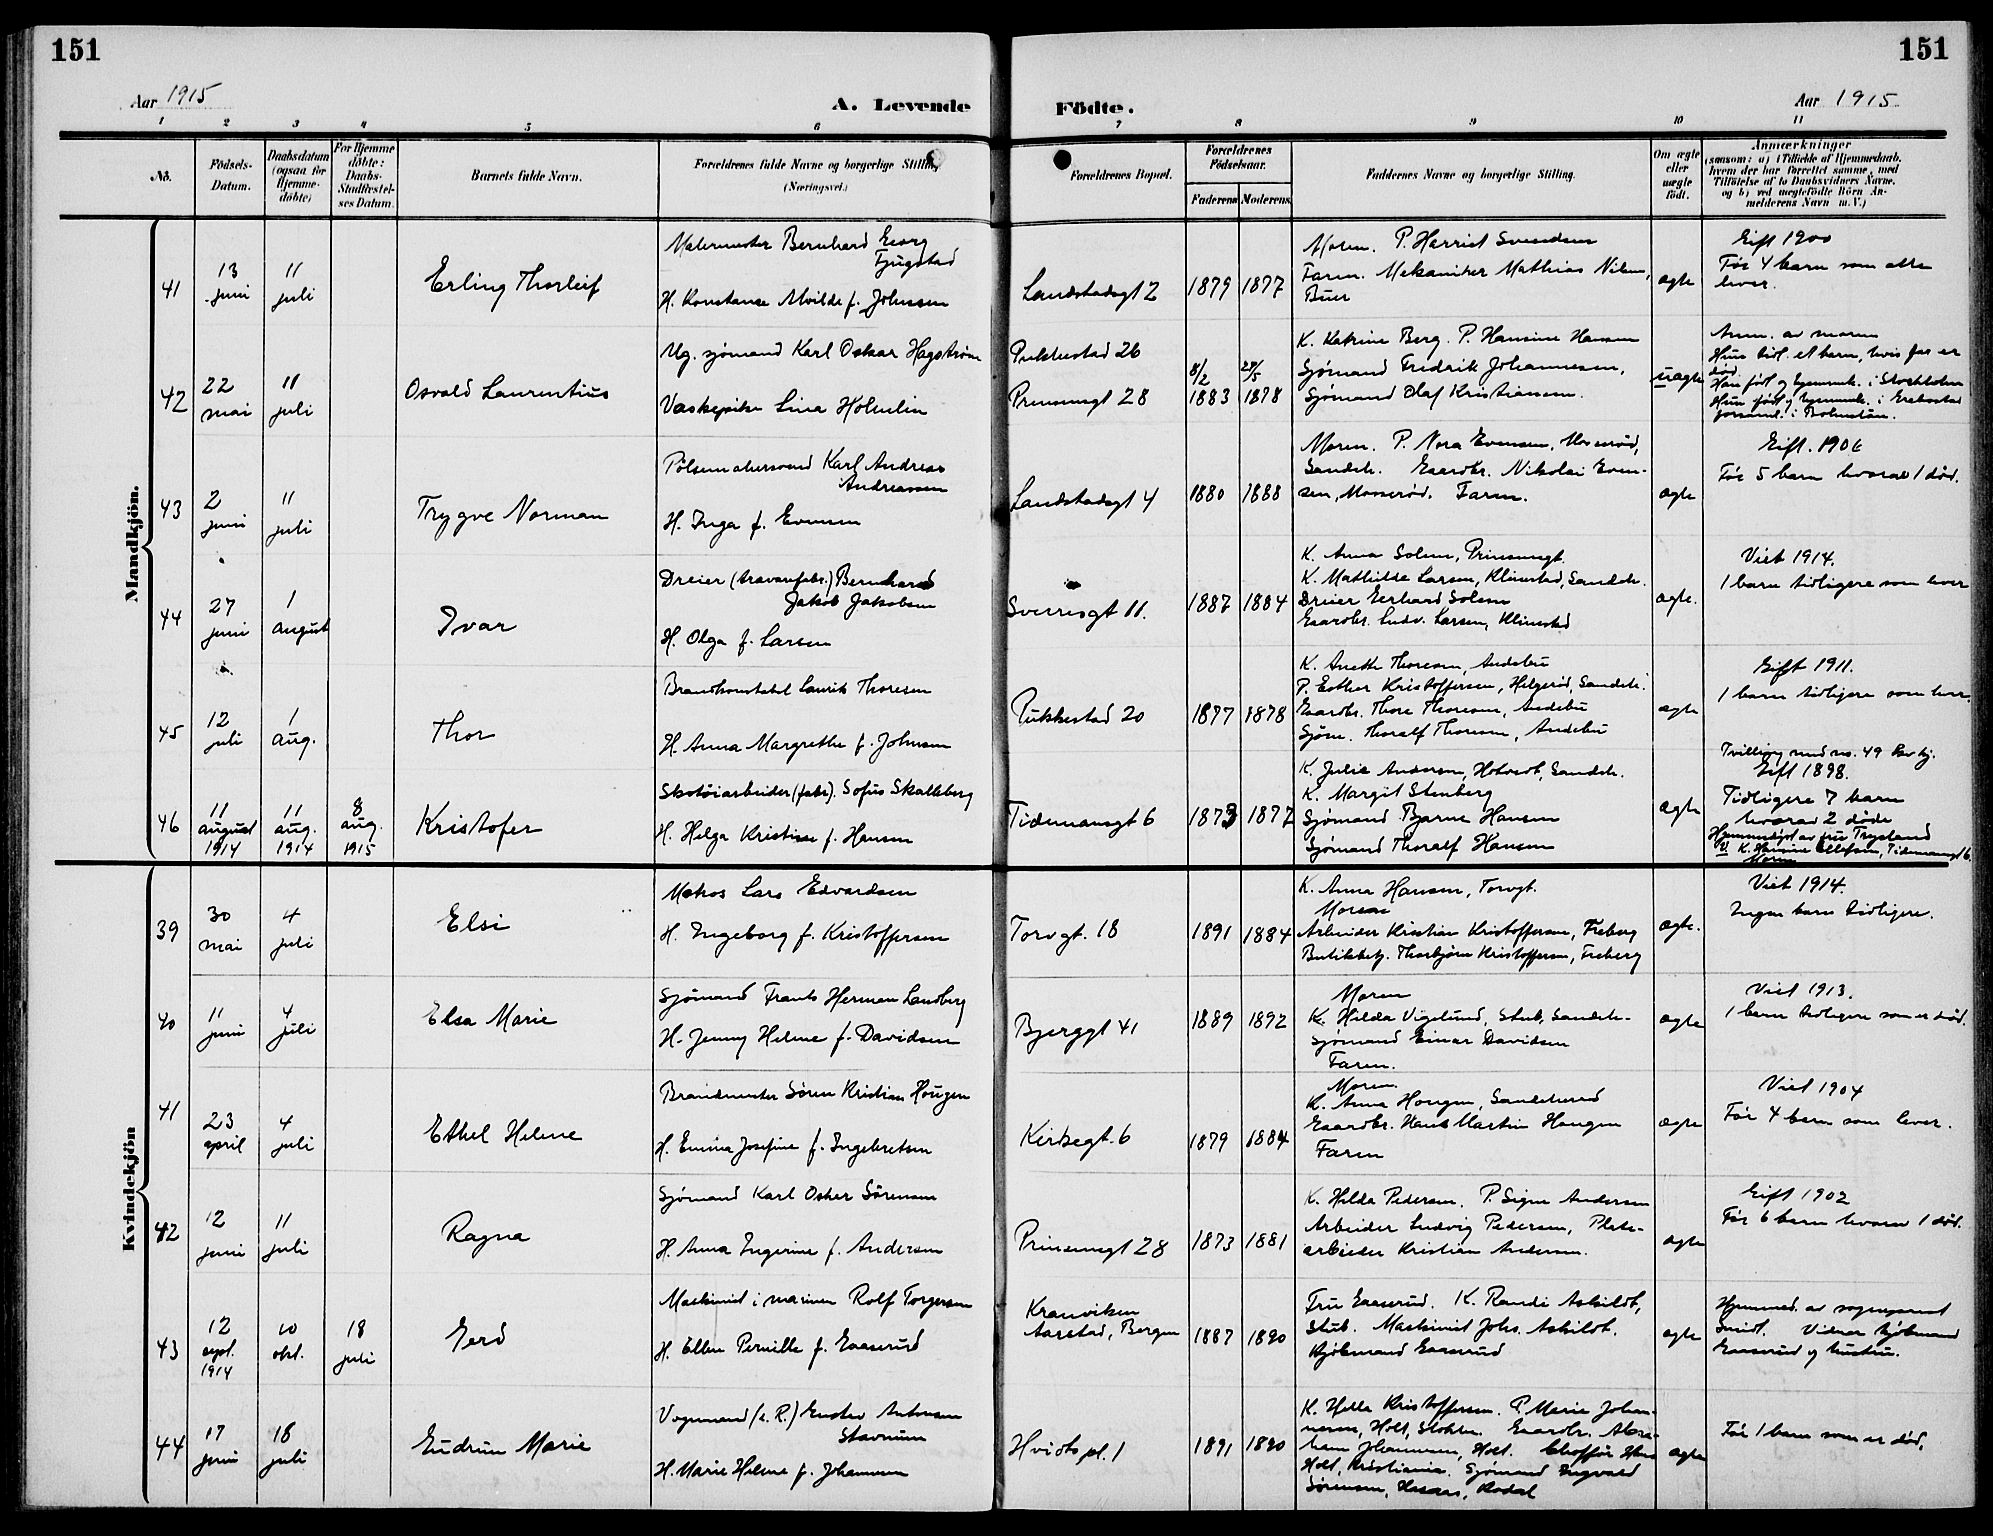 151
151
Aar 1915
A. Levende
Födte.
Aar 1915
1 2 3 4 5 6 7 8 9 10 11
No.
Födsels-
Datum.
Daabsdatum
(ogsaa for
Hjemme-
döbte)
For Hjemme
döbte:
Daabs-
Stadfæstel-
ses Datum.
Barnets fulde Navn.
Forældrenes fulde Navne og borgerlige Stilling
(Næringsvei.)
Forældrenes Bopæl.
Forældrenes
Födselsaar.
Faderens Moderens
Faddernes Navne og borgerlige Stilling.
Om ægte
eller
uægte
födt.
Anmærkninger
(saasom: a) i Tilfælde af Hjemmedaab,
hvem der har forrettet samme, med
Tilföielse af to Daabsvidners Navne,
og b) ved uegtefödte Börn An-
melderens Navn m. V.)
Mandkjön.
41
13
juni
11
juli
Erling Thorleif
Malermester Bernhard Georg
Fjugstad
H. Konstanse Alvilde f. Johnsen
Landstadsgt 2
1879 1877
Moren. P. Harriet Svendsen
Faren. Mekaniker Mathias Nilsen,
Buer
ægte
Gift 1900
Før 4 barn som alle
lever.
42
22
mai
11
juli
Osvald Laurentius
Ug. sjømand Karl Oskar Hagstrøm
Vaskepike Lina Holmlin
Pukkestad 26
Prinsensgt 28
8/2
1883
1878
K. Katrine Berg. P. Hansine Hansen
Sjømand Fredrik Johannessen,
Sjømand Olaf Kristiansen.
uægte
Anm. av moren
Hun tidl. et barn, hvis far er
død.
Han født og hjemmh. i Stockholm
Hun født og hjemmh. i
43
2
juni
11
juli
Trygve Norman
Pølsemakersvend Karl Andreas
Andreassen
H. Inga f. Evensen
Landstadsgt 4
1880 1888
Moren. P. Nora Evensen, Mosserød,
Sandeh. Gaardbr. Nikolai Even-
sen, Mosserød. Faren.
ægte
Gift. 1906
Før 5 barn hvorav 1 død.
44
27
juni
1
august
Ivar
Dreier (travarefabr.) Bernhard
Jakob Jakobsen
H. Olga f. Larsen
Sverresgt 11.
1887 1884
K. Anna Solem, Prinsensgt.
K. Mathilde Larsen, Klinestad, Sandeh.
Dreier Gerhard Solem
Gaardbr. Ludv. Larsen, Klinestad
ægte.
Viet 1914.
1 barn tidligere som lever
45
12
juli
1
aug.
Thor
Brandkonstabel Laurits Thoresen
H. Anna Margrethe f. Johnsen
Pukkestad 20
1877 1878
K. Anette Thoresen, Andebu
P. Esther Kristoffersen, Helgerød, Sandeh.
Gaardbr. Thore Thoresen, Andebu
Sjøm. Thoralf Thoresen, Andebu
ægte
Gift 1911.
1 barn tidligere som lever.
46
11
august
1914
11
aug.
1914
8
aug.
1915
Kristofer
Skotøiarbeider (fabr). Sofus Skalleberg
H. Helga Kristine f. Hansen
Tidemansgt 6
1873 1877
K. Julie Andersen, Sandeh.
K. Margit Stenberg
Sjømand Bjarne Hansen
Sjømand Thoralf Hansen
ægte
Tvilling med no. 49
Gift 1898.
Tidligere 7 barn
hvorav 2 døde
Hjemmedøpt av fru Trysland
V. K. Hansine Ellefsen, Tidemansgt 6.
Moren
Kvindekjön
39
30
mai
4
juli
Elsi
Matros Lars Edvardsen
H. Ingeborg f. Kristoffersen
Torvgt. 18
1891 1884
K. Anna Hansen, Torvgt.
Moren
Arbeider Kristian Kristoffersen, Freberg
Butikbetj. Thorbjørn Kristoffersen, Freberg
ægte.
Viet 1914.
Ingen barn tidligere.
40
11
juni
4
juli
Elsa Marie
Sjømand Frants Herman Landberg
H. Jenny Helene f. Davidsen
Bjerggt 41
1889 1892
Moren
K. Hilda Vigelund, Stub, Sandeh.
Sjømand Einar Davidsen
Faren.
ægte
Viet 1913.
1 barn tidligere som er død.
41
23
april
4
juli
Ethel Helene
Brandmester Søren Kristian Haugen
H. Emma Josefine f. Ingebretsen
Kirkegt. 6
1879 1884
Moren
K. Anna Haugen, Sandeherred
Gaardbr. Hans Martin Haugen
Faren
ægte
Viet 1904
Før 4 barn som lever.
42
12
juni
11
juli
Ragna
Sjømand Karl Oskar Sørensen
H. Anna Ingerine f. Andersen
Prinsensgt 28
1873 1881
K. Hilda Pedersen. P. Signe Andersen
Arbeider Ludvig Pedersen, Plate-
arbeider Kristian Andersen.
ægte
Gift 1902
Før 6 barn hvorav 1 død.
43
12
sept.
1914
10
okt.
18
juli
Gerd
Maskinist i marinen Rolf Torgersen
H. Ellen Pernille f. Gaaserud
Kranviken
Aarstad, Bergen
1887 1890
Fru Gaaserud. K. Randi Askildt,
Stub. Maskinist Johs. Askildt.
Kjøbmand Gaaserud
ægte
Hjemmed. av sogneprest
Smidt. Vidner Kjøbmand
Gaaserud og hustru.
44
17
juni
18
juli
Gudrun Marie
Vognmand (a. R.) Gustav Antonsen
Stavnum
H. Marie Helene f. Johannesen
Hvidts pl. 1
1891 1890
K. Helle Kristoffersen. P. Marie Johan-
nesen, Holt, Stokke. Gaardbr. Abra-
ham Johannesen, Holt. Chaffør Hans
Holt, Kristiania. Sjømand Ingvald
Sørensen,
ægte
Før 1 barn som er død.